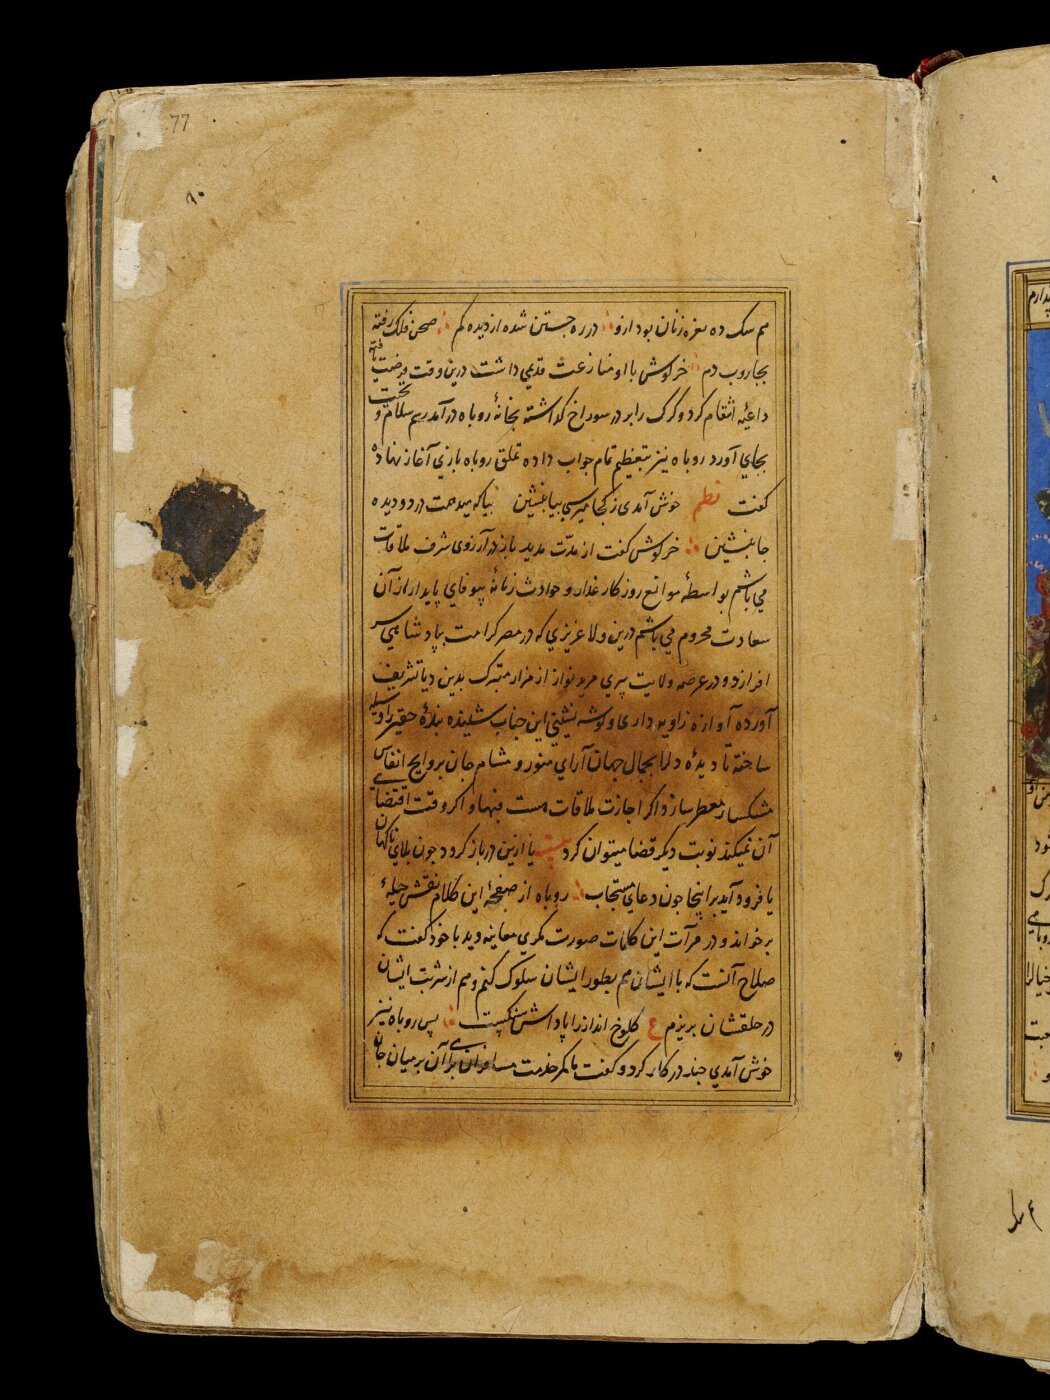 77
هم سک ده نعره زنان بود ازو ؞ در ره جستن شده از دیده کم ؞ صحن فلک رفته
بجاروب دم ؞ خرکوش با او منازعت قدیمی داشت درین وقت فرصت یافته
داعیهٔ انتقام کرد و کرک را بر در سوراخ کذاشته بخانهٔ روباه درآمد رسم سلام و تحیت
بجای آورد روباه نیز بتعظیم تمام جواب داده تملق روباه بازی آغاز نهاده
کفت نظم خوش آمدی ز کجا میرسی بیا بنشین بیا که میدهمت در دو دیده
جا بنشین ؞ خرکوش کفت از مدّت مدید باز در آرزوی شرف ملاقات
می باشم بواسطهٔ موانع روزکار غدار و حوادث زمانهٔ بیوفای پایدار از آن
سعادت محروم می باشم درین ولا عزیزی که در مصر کرامت بپادشاهی سر
افرازد و در عرصه ولایت پیری مرید نواز از مزار متبرک بدین دیار تشریف
آورده آوازه زاویه داری و کوشه نشینی این جناب شنیده بندهٔ حقیر را وسیله
ساخته تا دیدهٔ دل را بجمال جهان آرای منور و مشام جان بروایح انفاس
مشکسار معطر سازد اکر اجازت ملاقات هست فبها و اکر وقت اقتضای
آن نمیکند نوبت دیکر قضا میتوان کرد بیت یا ازین در باز کردد چون بلای ناکهان
یا فرود آید بر اینجا چون دعای مستجاب ؞ روباه از صفحهٔ این کلام نقش حیلهٔ
برخواند و در مرآت این کلمات صورت مکری معاینه دید با خود کفت که
صلاح آنست که با ایشان هم بطور ایشان سلوک کنم و هم از شربت ایشان
در حلقشان بریزم ع کلوخ انداز را پاداش سنکست ؞ پس روباه نیز
خوش آمدی چند در کار کرد و کفت ما کمر خدمت مسافران برای آن بر میان جان